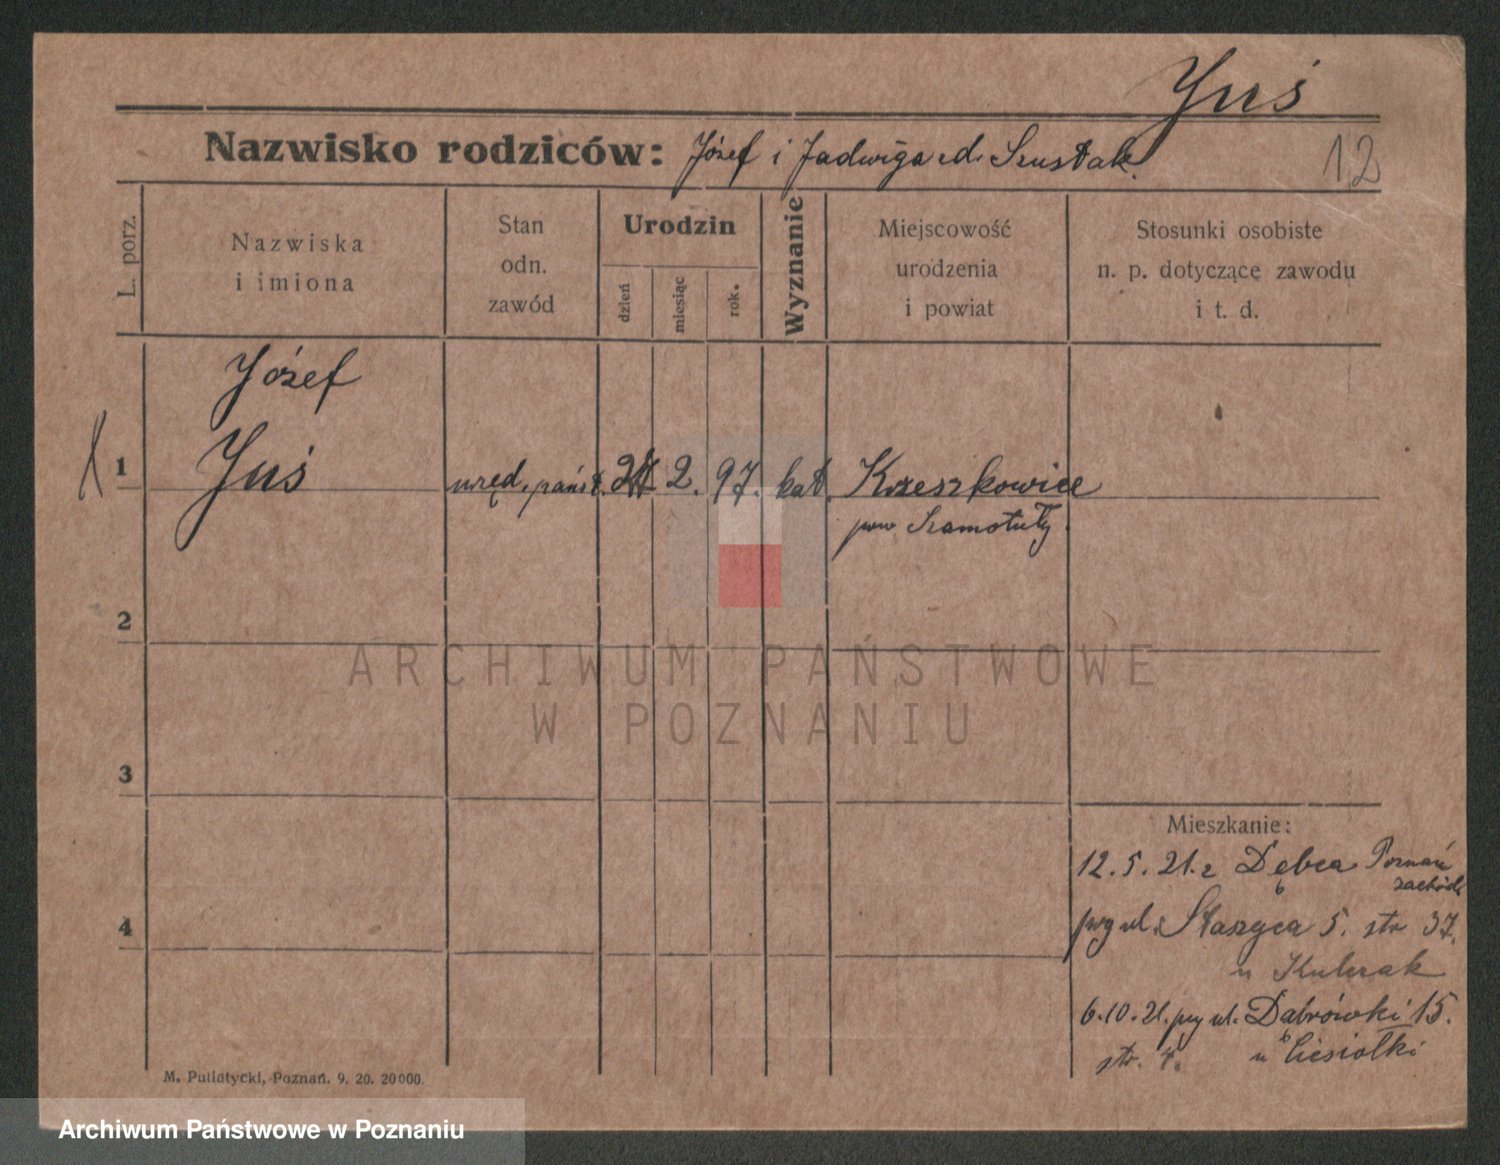 Juś
Nazwisko rodziców: Józef i Jadwiga zd. Szustak.
12
L. porz.
Nazwiska
i imiona
Stan
odn.
zawód
Urodzin
dzień
miesiąc
rok.
Wyznanie
Miejscowość
urodzenia
i powiat
Stosunki osobiste
n. p. dotyczące zawodu
i t. d.
Józef
1 Juś urzęd. państ. 2. 97. kat. Krzeszkowice
pow Szamotuły.
2
ARCHIWUM PAŃSTWOWE
W POZNANIU
3
4
Mieszkanie:
12. 5. 21. z Dębca Poznań
zachód.
przy ul. Staszyca 5. str 37.
u
6.10.21. przy ul. Dąbrówki 15.
str. u Ciesiołki
M. Putiatycki, Poznań. 9. 20. 20000.
Archiwum Państwowe w Poznaniu